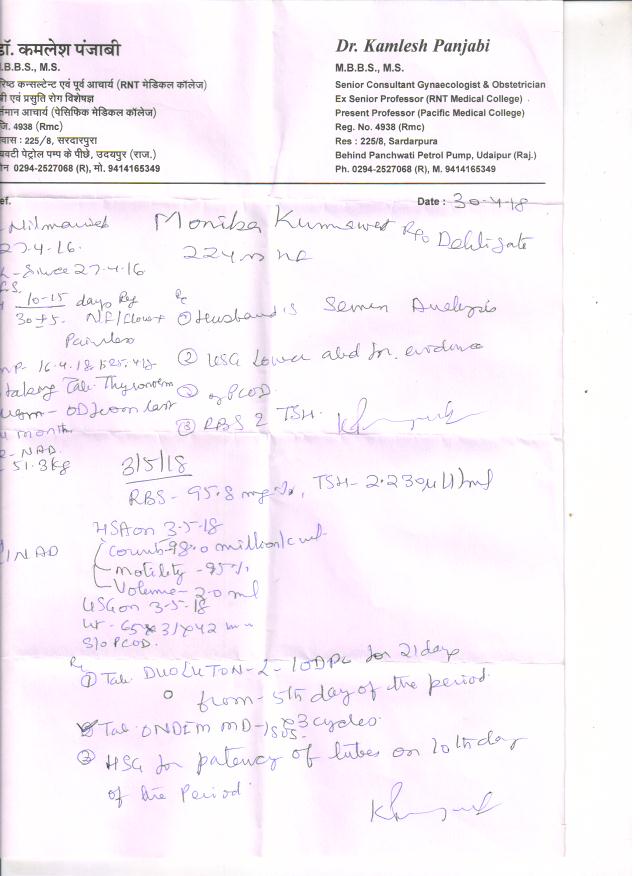 डॉ. कमलेश पंजाबी
.B.B.S., M.S.
रिष्ठ कन्सल्टेन्ट एवं पूर्व आचार्य (RNT मेडिकल कॉलेज)
त्री एवं प्रसुति रोग विशेषज्ञ
र्तमान आचार्य (पेसिफिक मेडिकल कॉलेज)
जि. 4938 (Rmc)
वास : 225/8, सरदारपुरा
चवटी पेट्रोल पम्प के पीछे, उदयपुर (राज.)
ोन 0294-2527068 (R), मो. 9414165349
Dr. Kamlesh Panjabi
M.B.B.S., M.S.
Senior Consultant Gynaecologist & Obstetrician
Ex Senior Professor (RNT Medical College)
Present Professor (Pacific Medical College)
Reg. No. 4938 (Rmc)
Res : 225/8, Sardarpura
Behind Panchwati Petrol Pump, Udaipur (Raj.)
Ph. 0294-2527068 (R), M. 9414165349
ef.
Date : 30-4-18
Monika Kumawat R/o Dehligate
22 yrs
27.4.16.
- Since 27-4-16
10-15 days Reg
30±5- NF/Clowt
Painless
16.4.18
taking Tab. Thyronorm
- OD from last
month
- NAD
- 51.3kg
Rx
① Husband's Semen Analysis
② USG Lower abd for evidence
of PCOD.
③ RBS 2 TSH.
3/5/18
RBS - 95.8 mg%, TSH - 2.239 µIU/ml
HSA on 3-5-18
NAD
Count - 98.0 million/c ml
Motility - 95%
Volume - 2.0 ml
USG on 3-5-18
Ut - 65x31x42 mm
S/o PCOD.
Rx
① Tab DUOLUTON-L - 1 OD PC for 21 days
from - 5th day of the period.
Tab ONDEM MD - 1 SOS x 3 cycles
③ HSG for patency of tubes on 10th day
of the Period